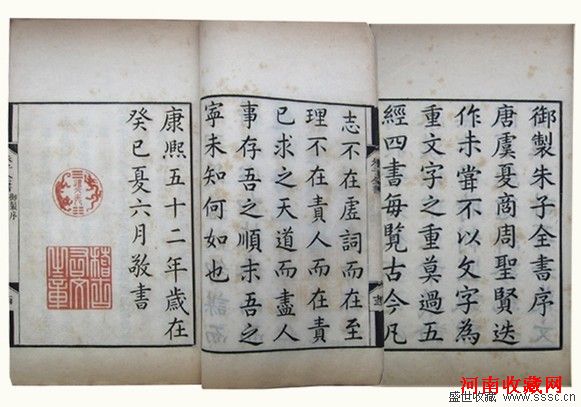 御製朱子全書序
唐虞夏商周聖賢迭
作未甞不以文字為
重文字之重莫過五
經四書每覧古今凡
志不在虛詞而在至
理不在責人而在責
已求之天道而盡人
事存吾之順末吾之
寧未知何如也
康熙五十二年歲在
癸巳夏六月敬書
稽古右文之章
河南收藏网
盛世收藏 www.sssc.cn